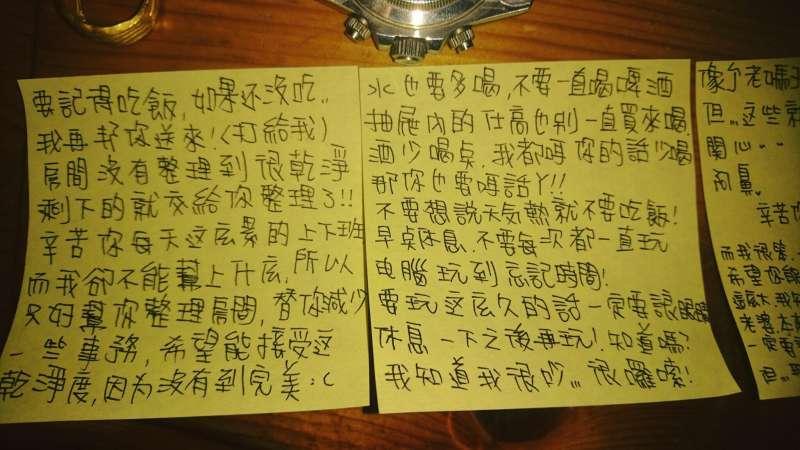 要記得吃飯,如果还没吃..
我再帮你送來!(打給我)
房間沒有整理到很乾淨
剩下的就交給你整理了!!
辛苦你每天这么累的上下班
而我卻不能幫上什么,所以
只好幫你整理房間,替你減少
一些事務,希望能接受这
乾淨度,因为沒有到完美:c
水也要多喝,不要一直喝啤酒
抽屜內的仕高也別一直買來喝.
酒少喝点.我都听你的話少喝
那你也要听話丫!!
不要想說天氣熱就不要吃飯!
早点休息.不要每次都一直玩
电腦玩到忘記時間!
要玩这么久的話一定要讓眼睛
休息一下之後再玩!知道嗎?
我知道我很吵...很囉嗦!
像个老媽子
但..这些就
関心..
辛苦
而我很
希望你能
老婆
一定要
但...